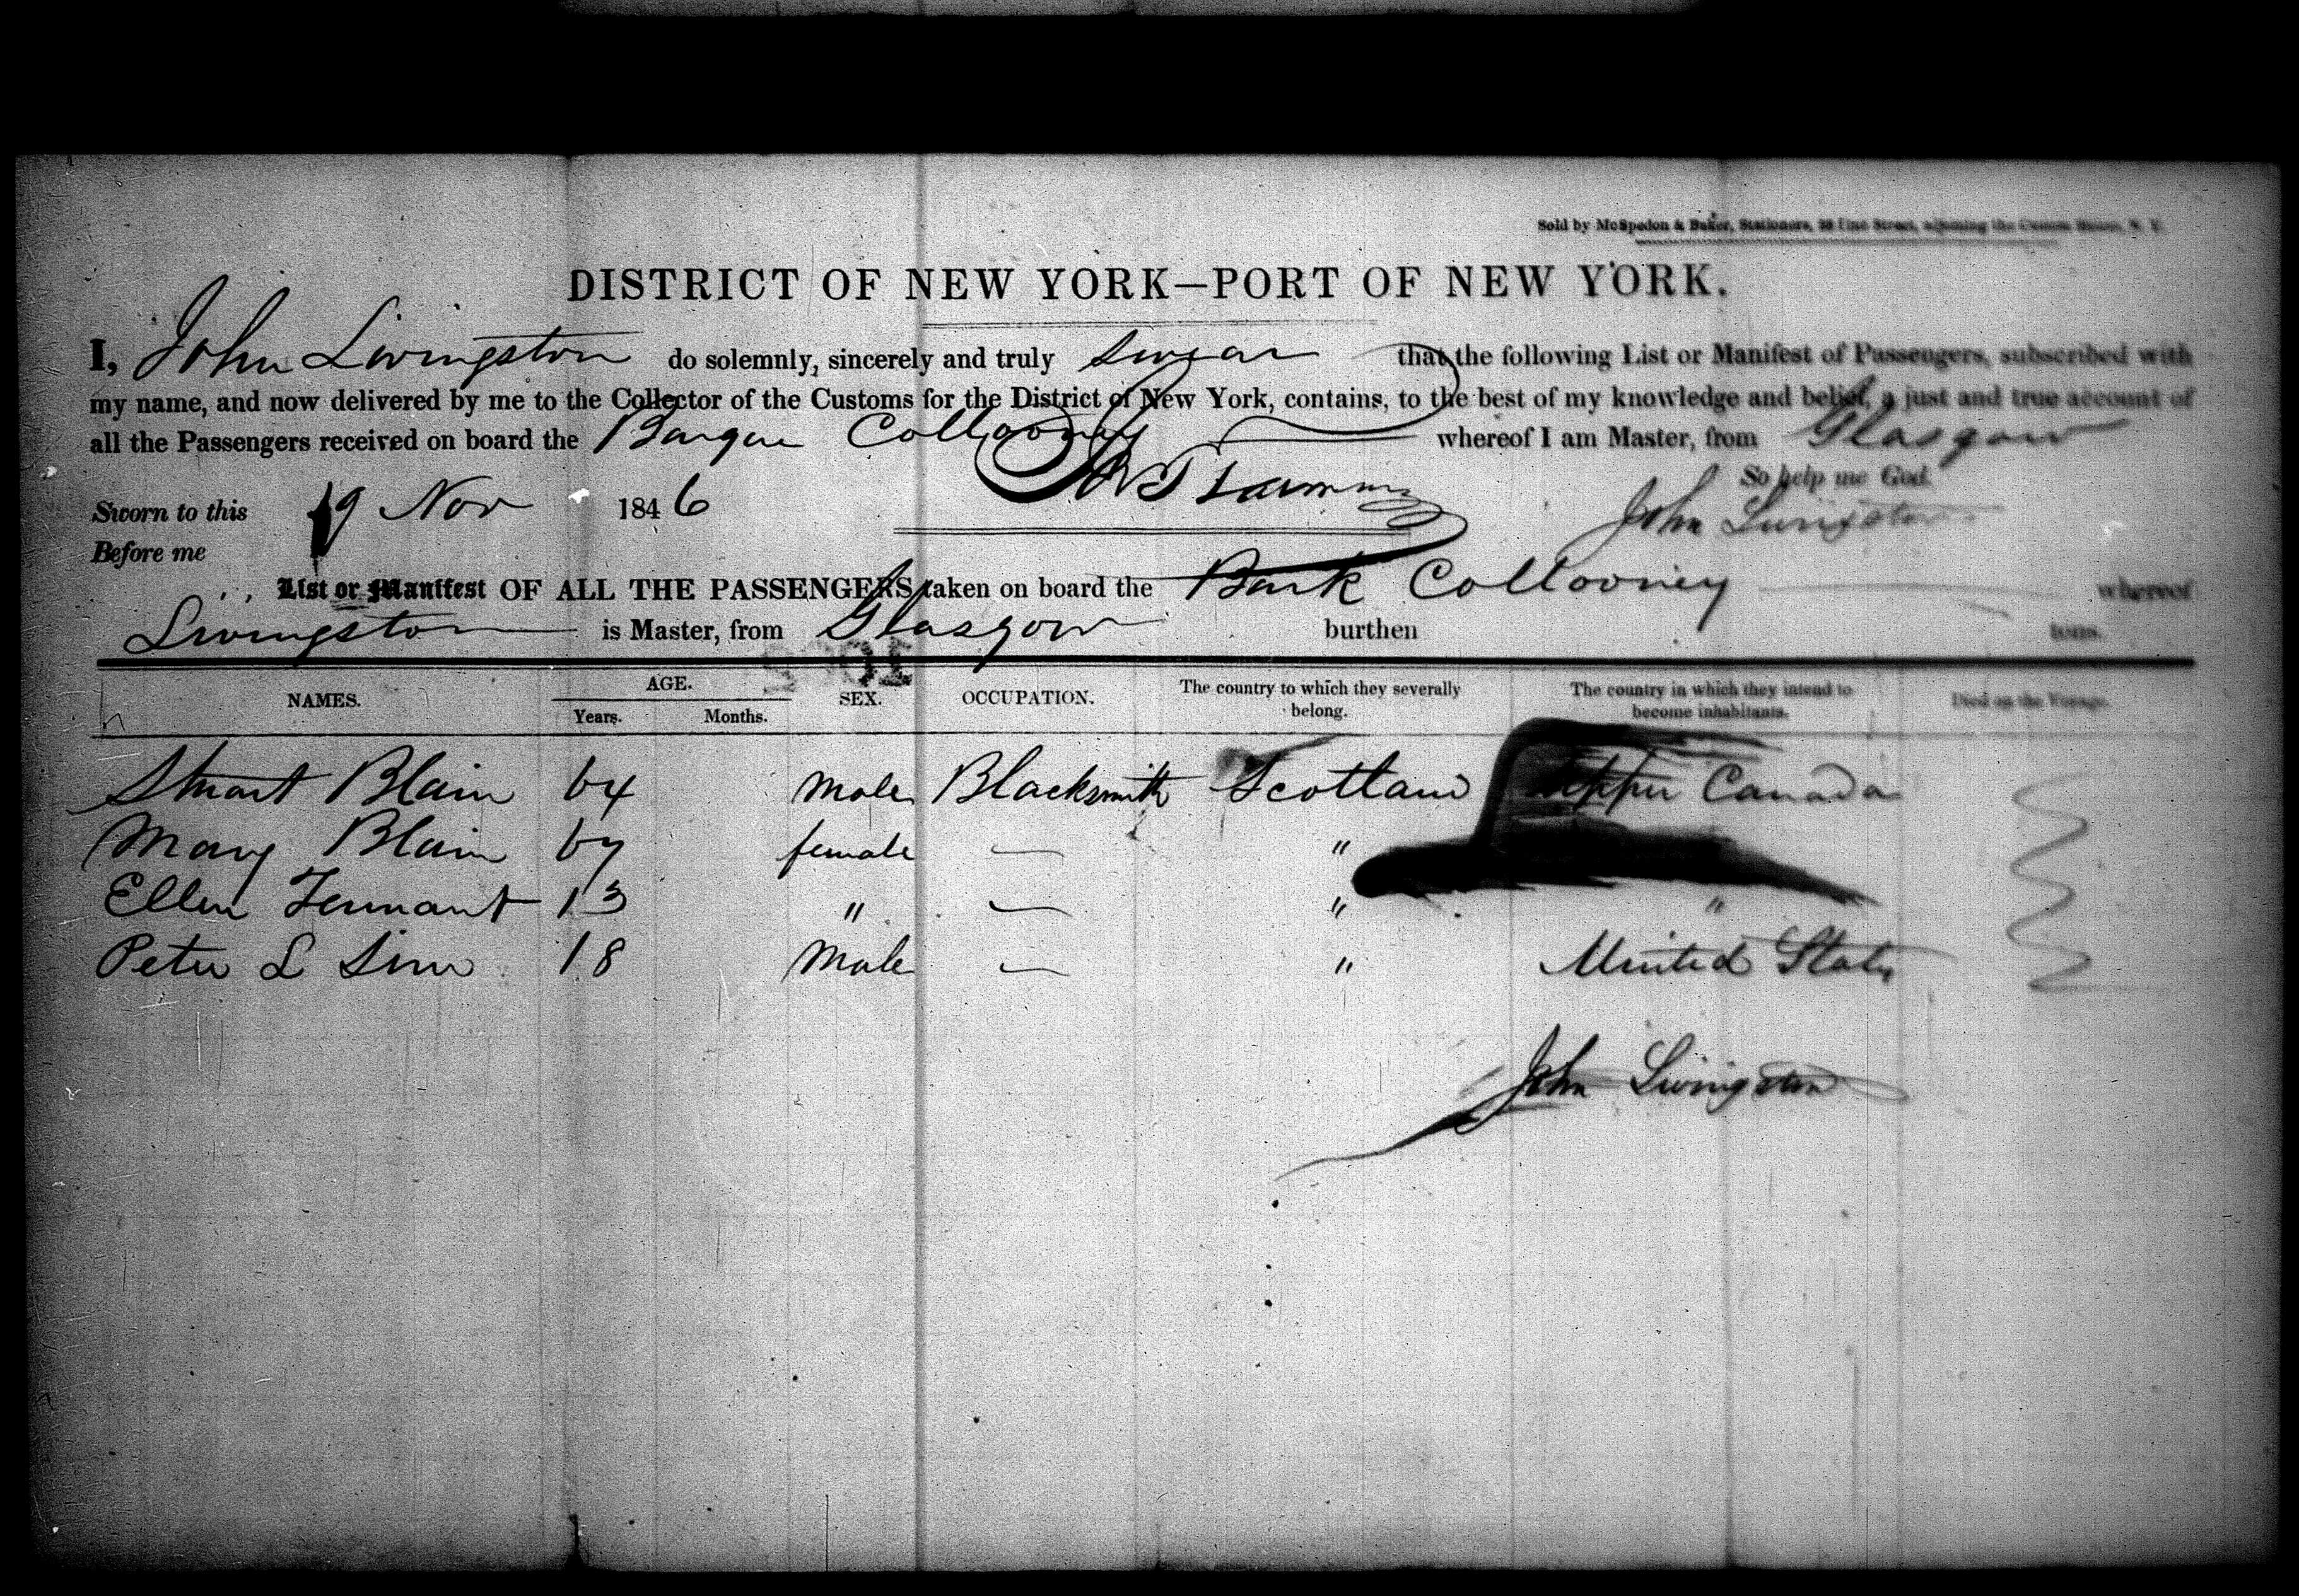 Sold by McSpedon & Baker, Stationers, Street, adjoining the Custom House, N. Y.
DISTRICT OF NEW YORK—PORT OF NEW YORK.
I, John Livingston do solemnly, sincerely and truly swear that the following List or Manifest of Passengers, subscribed with
my name, and now delivered by me to the Collector of the Customs for the District of New York, contains, to the best of my knowledge and belief, a just and true account of
all the Passengers received on board the Barque Collooney whereof I am Master, from Glasgow
So help me God.
Sworn to this 19 Nov 1846 John Livingston
Before me
List or Manifest OF ALL THE PASSENGERS taken on board the Bark Collooney whereof
Livingston is Master, from Glasgow burthen tons.
NAMES. AGE. Years. Months. SEX. OCCUPATION. The country to which they severally belong. The country in which they intend to become inhabitants. Died on the Voyage.
Stuart Blain 64 Male Blacksmith Scotland Upper Canada
Mary Blain 67 female — "
Ellen Tennant 13 " — " "
Peter L Sim 18 Male — " United States
John Livingston